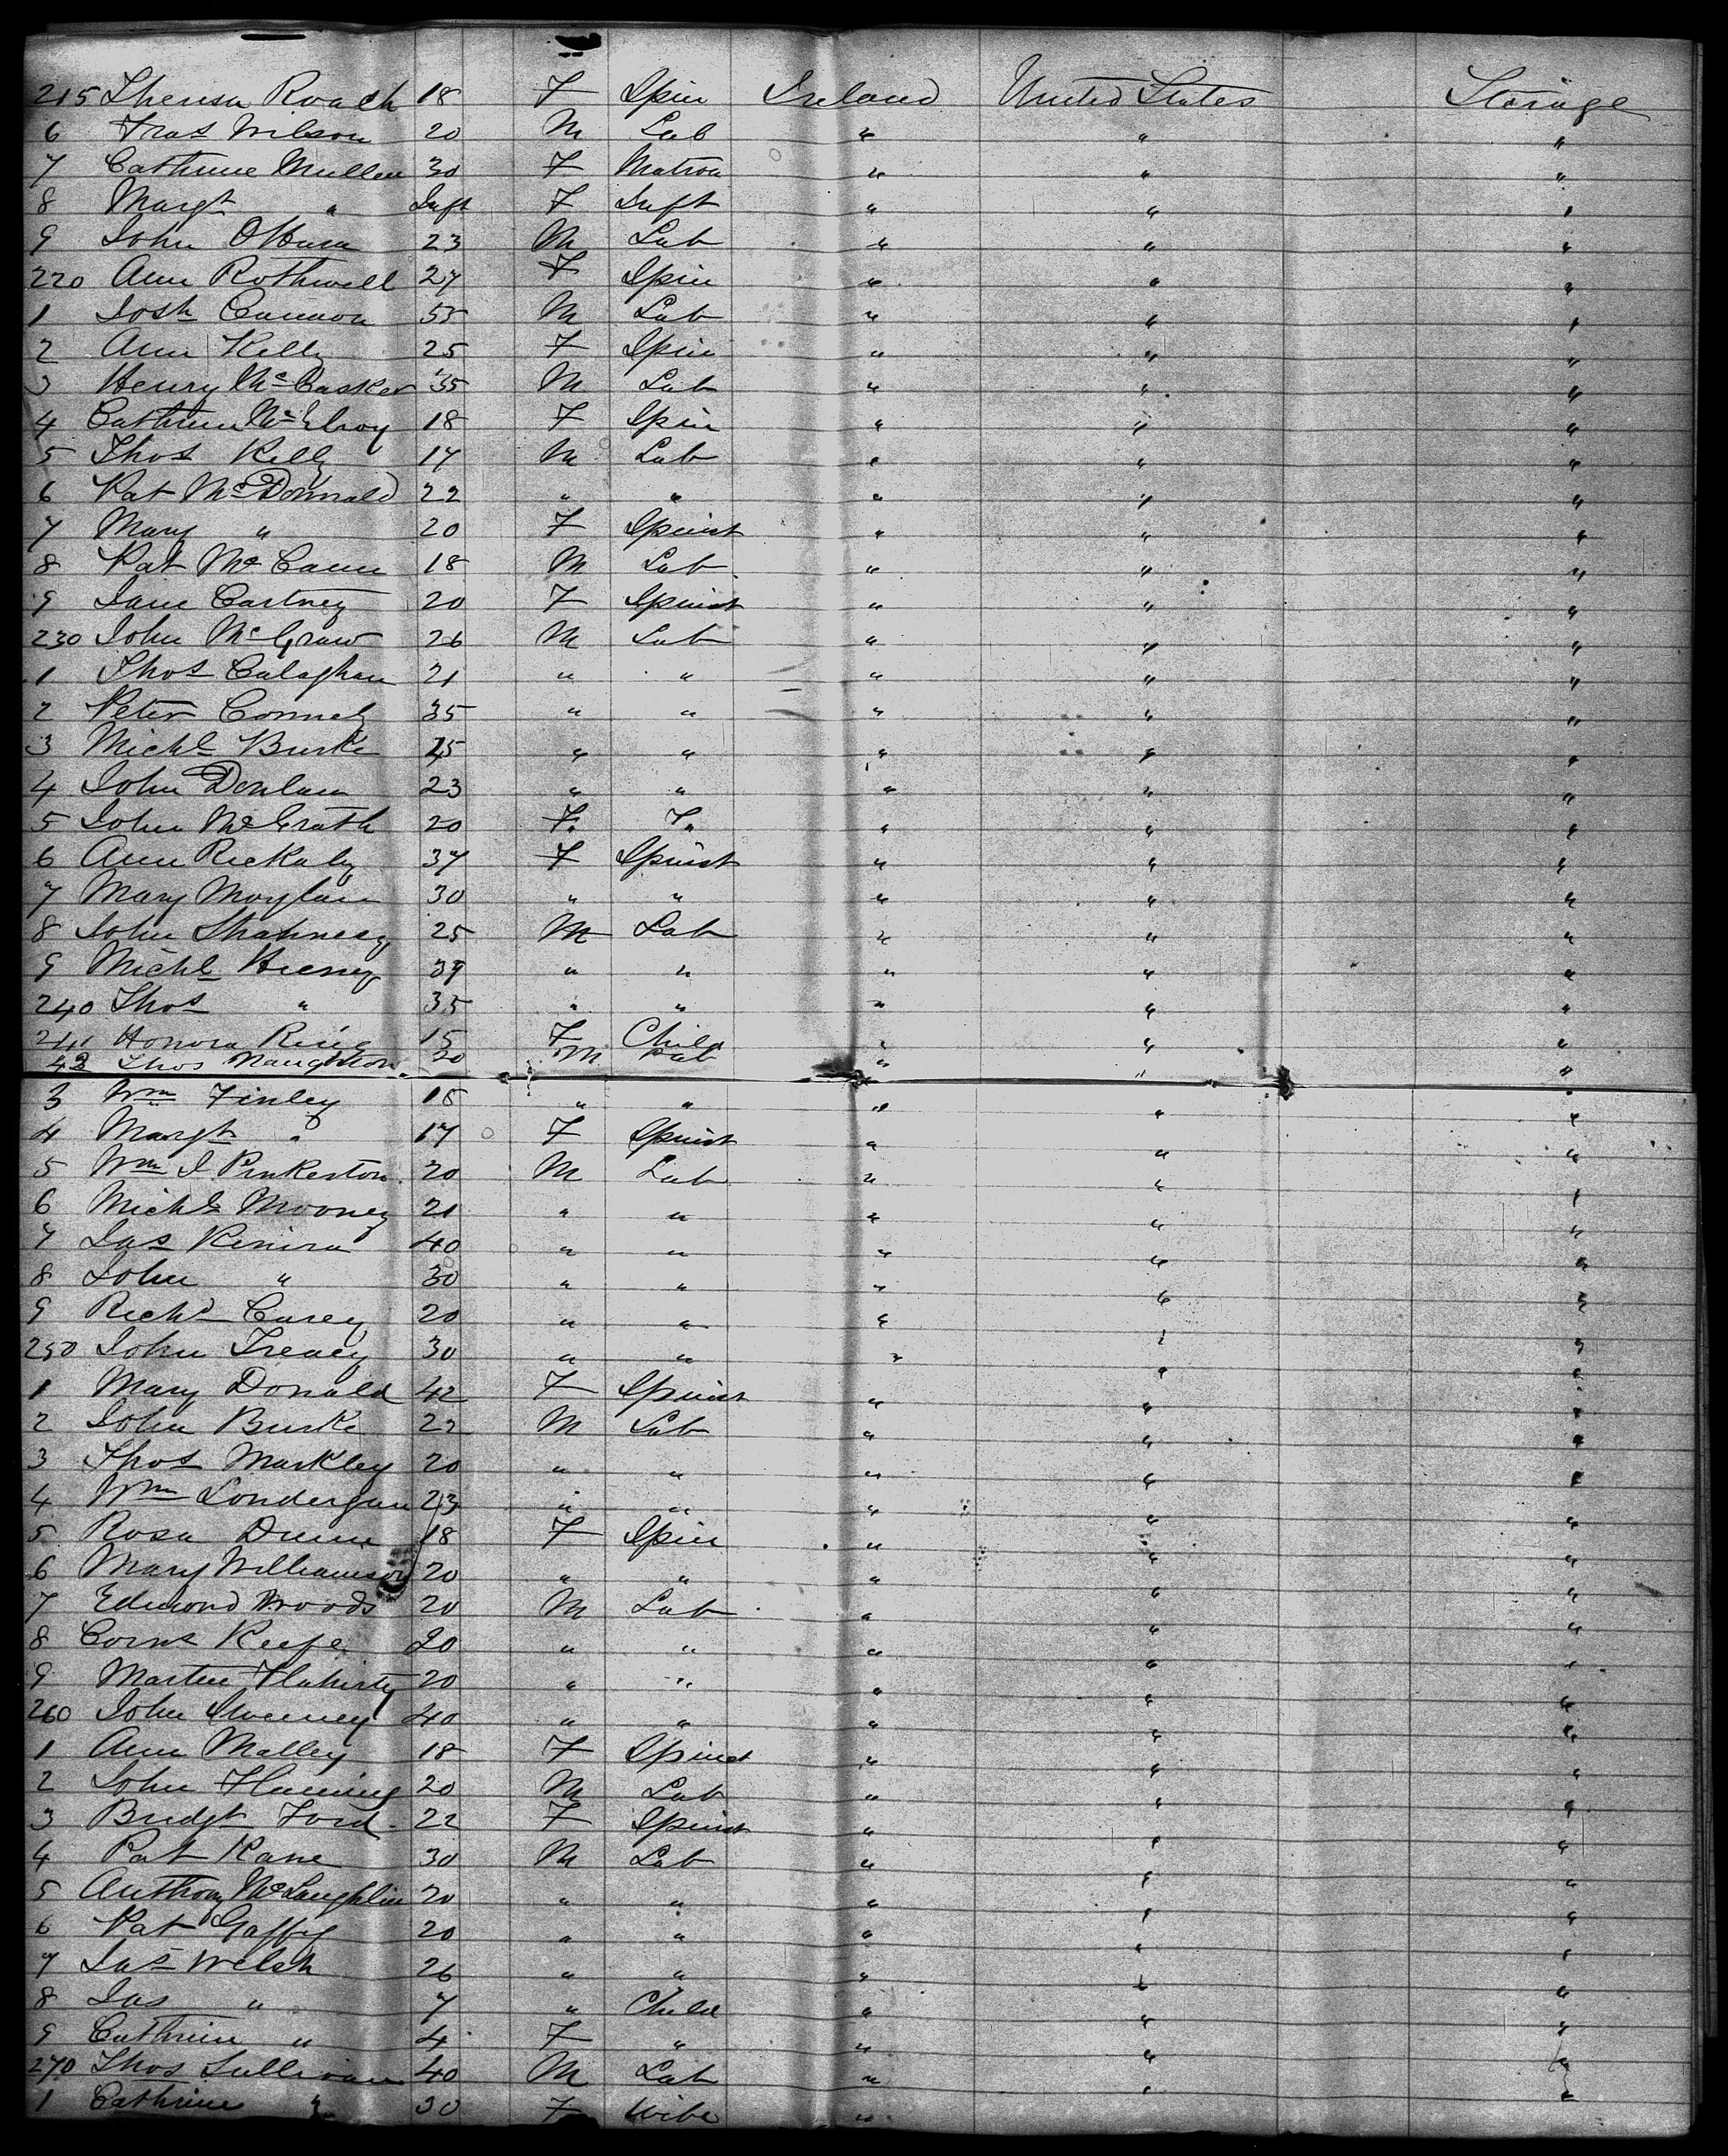 215 Theresa Roach 18 F Spin Ireland United States Steerage
6 Fras Wilson 20 M Lab " " "
7 Cathrine Mullen 30 F Matron " " "
8 Margt " Inft F Inft " " "
9 John OHara 23 M Lab " " "
220 Ann Rothwell 27 F Spin " " "
1 Josh Cannon 55 M Lab " " "
2 Ann Kelly 25 F Spin " " "
3 Henry McCasker 35 M Lab " " "
4 Cathrine McElroy 18 F Spin " " "
5 Thos Kelly 17 M Lab " " "
6 Pat McDonnald 22 " " " " "
7 Mary " 20 F Spinst " " "
8 Pat McCann 18 M Lab " " "
9 Jane Cartney 20 F Spinst " " "
230 John McGraw 26 M Lab " " "
1 Thos Calaghan 21 " " " " "
2 Peter Connely 35 " " " " "
3 Michl Burke 25 " " " " "
4 John Donlan 23 " " " " "
5 John McGrath 20 " " " " "
6 Ann Rickaly 37 F Spinst " " "
7 Mary Moylan 30 " " " " "
8 John Shahnesy 25 M Lab " " "
9 Michl Hieney 39 " " " " "
240 Thos " 35 " " " " "
241 Honora Ring 15 F Child " " "
42 Thos Naughton 20 M Lab " " "
3 Wm Finley 18 " " " " "
4 Margt " 17 F Spinst " " "
5 Wm J Pinkerton 20 M Lab " " "
6 Michl Mooney 21 " " " " "
7 Jas Kinira 40 " " " " "
8 John " 30 " " " " "
9 Richd Carey 20 " " " " "
250 John Treacy 30 " " " " "
1 Mary Donald 42 F Spinst " " "
2 John Burke 22 M Lab " " "
3 Thos Markley 20 " " " " "
4 Wm Londergan 23 " " " " "
5 Rosa Dunn 18 F Spin " " "
6 Mary Williamson 20 " " " " "
7 Edmond Woods 20 M Lab " " "
8 Corns Keefe 20 " " " " "
9 Martin Flahirty 20 " " " " "
260 John Sweeney 40 " " " " "
1 Ann Malley 18 F Spinst " " "
2 John Fleming 20 M Lab " " "
3 Bridgt Ford 22 F Spinst " " "
4 Pat Kane 30 M Lab " " "
5 Anthony McLaughlin 20 " " " " "
6 Pat Gaffy 20 " " " " "
7 Jas Welsh 26 " " " " "
8 Jas " 7 " Child " " "
9 Cathrine " 4 F " " " "
270 Thos Sullivan 40 M Lab " " "
1 Cathrine " 30 F Wife " " "